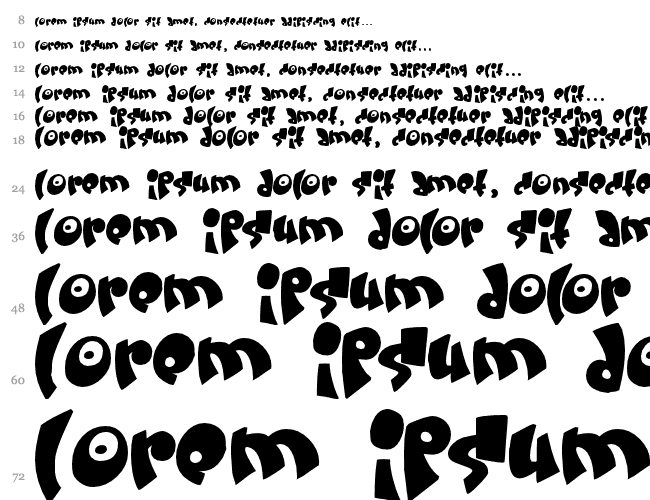 8 lorem ipsum dolor sit amet, consectetuer adipiscing elit...
10 lorem ipsum dolor sit amet, consectetuer adipiscing elit...
12 lorem ipsum dolor sit amet, consectetuer adipiscing elit...
14 lorem ipsum dolor sit amet, consectetuer adipiscing elit...
16 lorem ipsum dolor sit amet, consectetuer adipiscing elit
18 lorem ipsum dolor sit amet, consectetuer adipiscin
24 lorem ipsum dolor sit amet, consecte
36 lorem ipsum dolor sit am
48 lorem ipsum dolor
60 lorem ipsum do
72 lorem ipsum